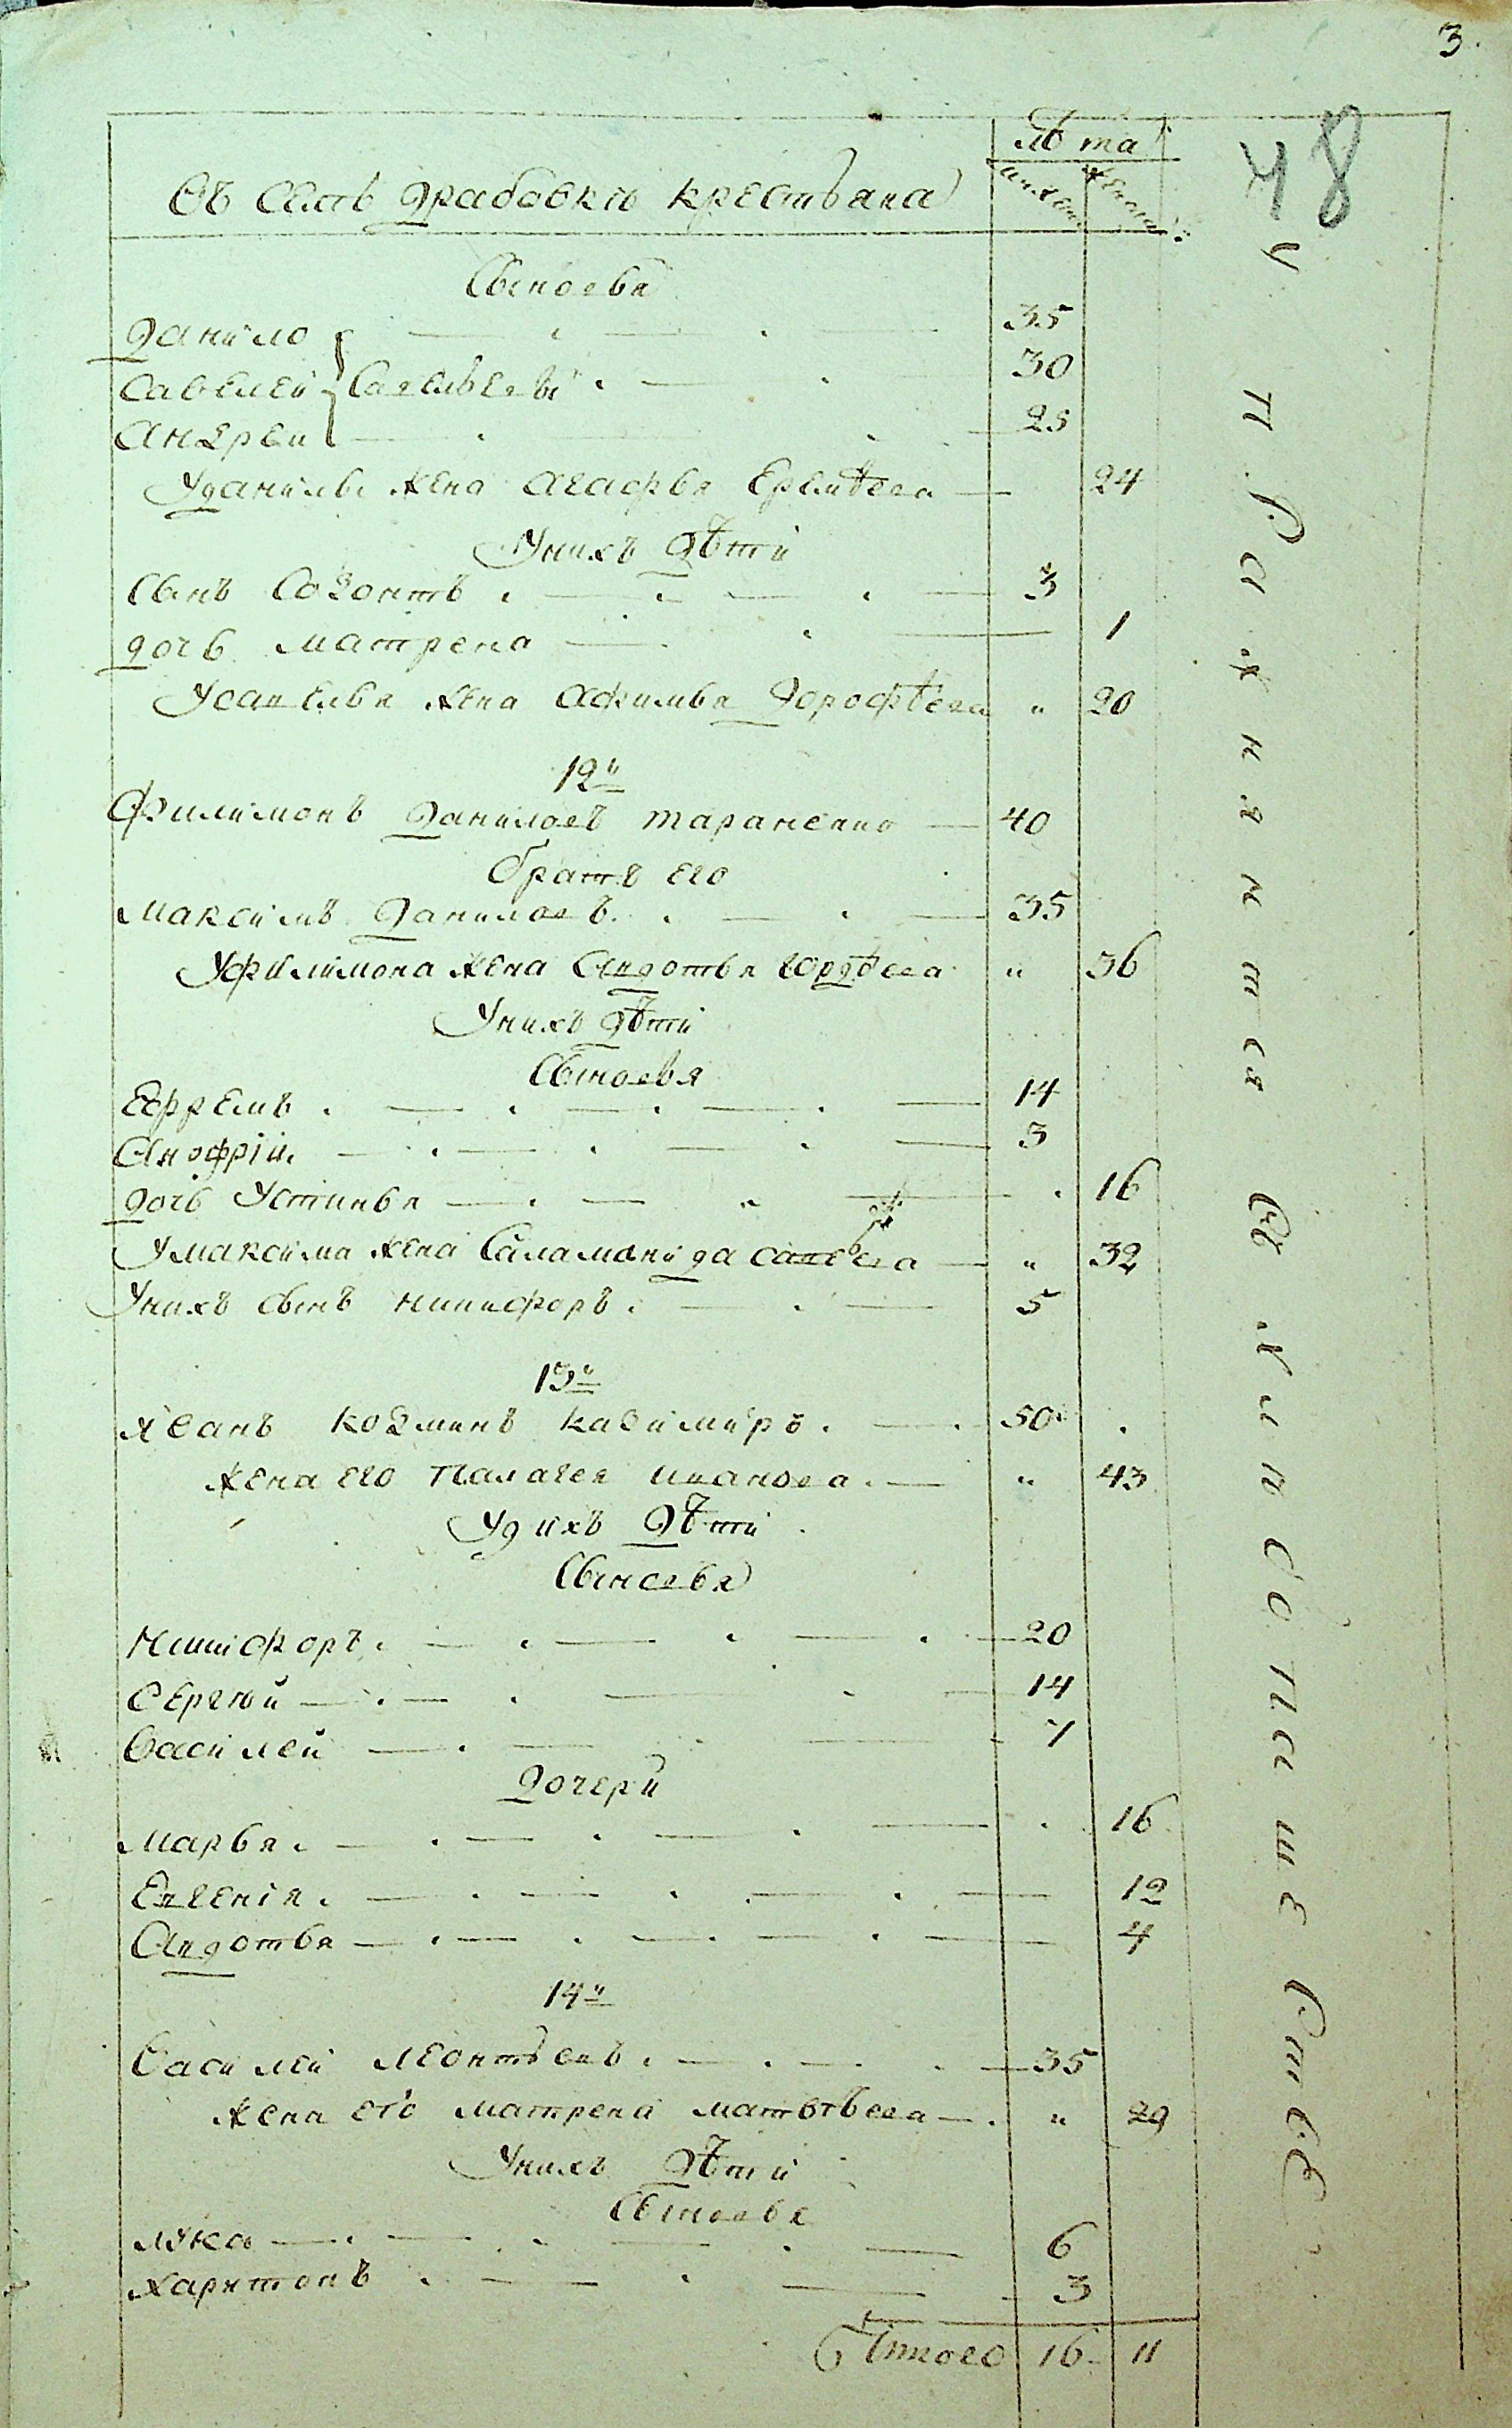 3.
48
лѣта
Въ Селѣ Драбовкѣ крестьяна
мужеск: женска:
Сыновья
Данило 35
Савелей Савельевы 30
Андрей 25
У Данилы жена Агафья Еремѣева 24
У нихъ дѣти
Сынъ Созонтъ 3
дочь Матрена 1
У Савелья жена Акилина Дорофѣева 20
12й
Филимонъ Даниловъ Тараненко 40
братъ его
Максимъ Даниловъ 35
У Филимона жена Авдотья Гордѣева 36
У нихъ дѣти
Сыновья
Ефремъ 14
Анофрій 3
дочь Устинья 16
У Максима жена Саламанида 32
У нихъ сынъ Никифоръ 5
13й
Иванъ Козминъ Казимиръ 50
жена его Палагея Иванова 43
У нихъ дѣти
Сыновья
Никифоръ 20
Сергѣй 14
Василей 7
Дочери
Марья 16
Евгенія 12
Авдотья 4
14й
Василей Леонтьевъ 35
жена его Матрена Матвѣева 29
У нихъ Дѣти
Сыновья
Лука 6
Харитонъ 3
Итого 16 11